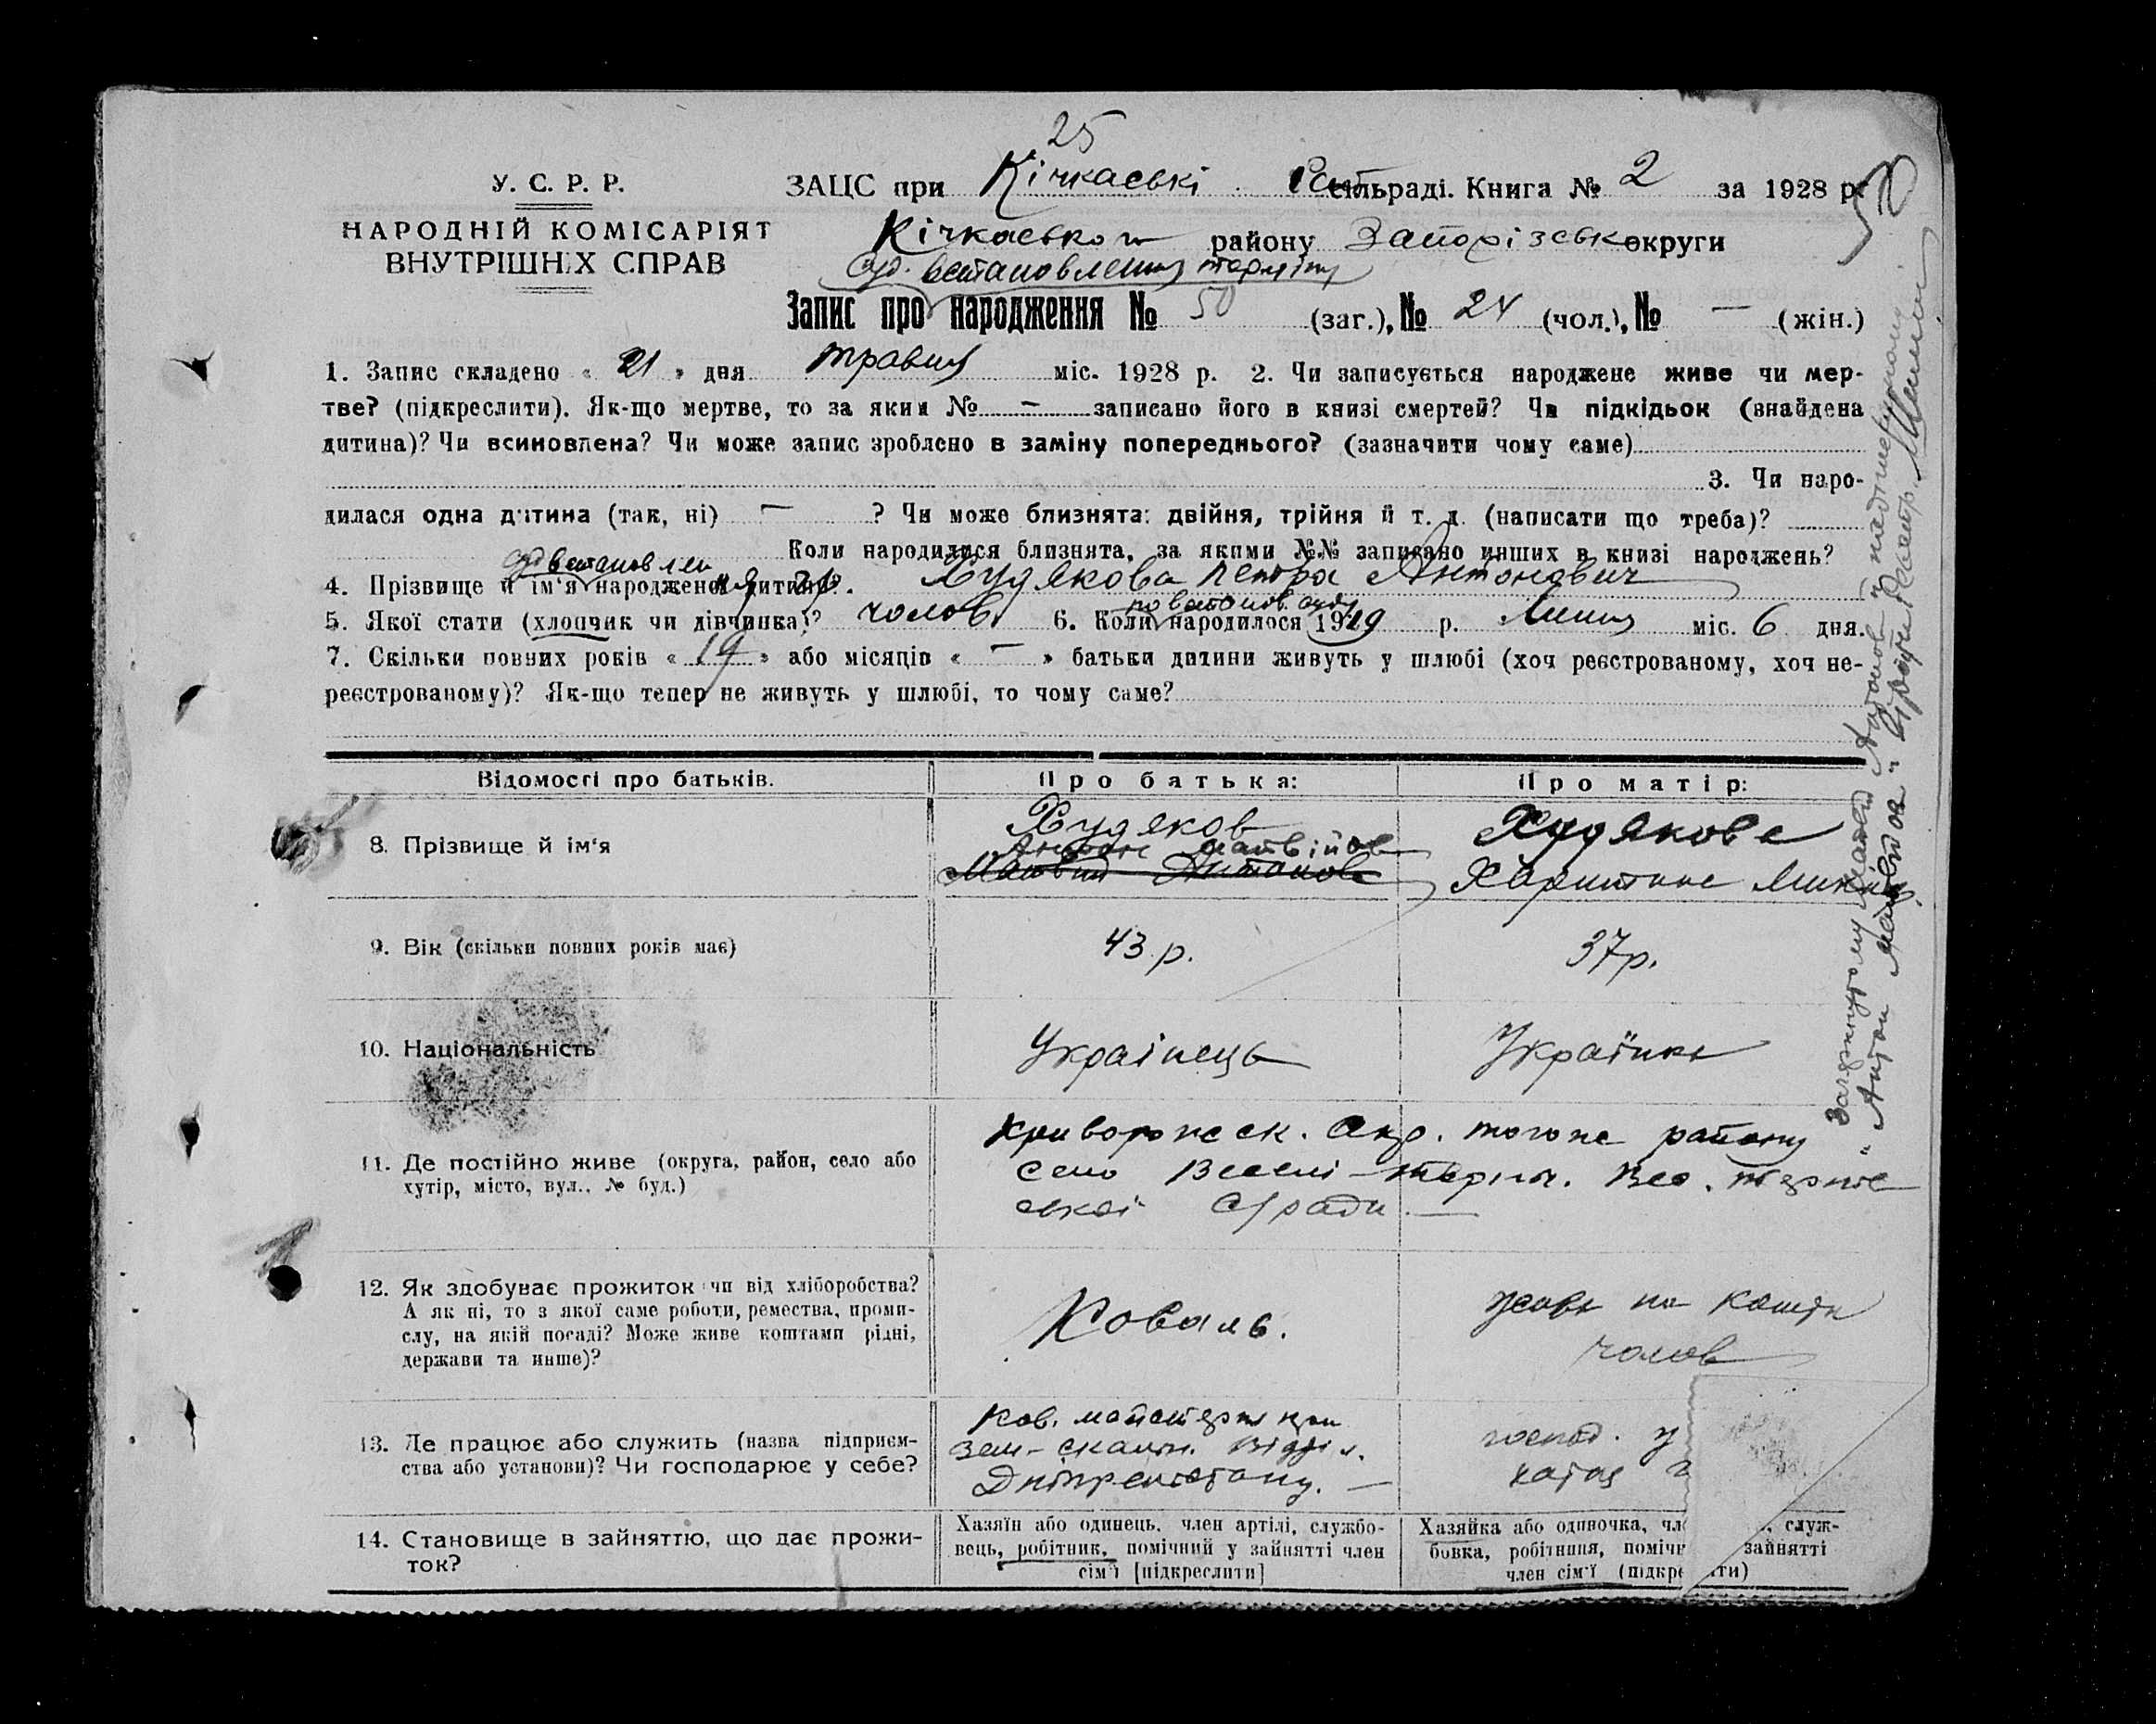 25
У. С. Р. Р.
НАРОДНІЙ КОМІСАРІЯТ
ВНУТРІШНІХ СПРАВ
ЗАЦС при Кічкаські сільраді. Книга № 2 за 1928 р.
50
Кічкаського району Запорізськ округи
суд. встановлення терміну
Запис про народження № 50 (заг.), № 24 (чол.), № — (жін.)
1. Запис складено « 21 » дня травня міс. 1928 р. 2. Чи записується народжене живе чи мер-
тве? (підкреслити). Як-що мертве, то за яким № – записано його в книзі смертей? Чи підкідьок (знайдена
дитина)? Чи всиновлена? Чи може запис зроблено в заміну попереднього? (зазначити чому саме)
3. Чи наро-
дилася одна дитина (так, ні) — ? Чи може близнята: двійня, трійня й т. д. (написати що треба)?
Коли народилися близнята, за якими №№ записано инших в книзі народжень?
суд встановлен
4. Прізвище й ім'я народженої дитини? Худякова Петра Антонович
5. Якої стати (хлопчик чи дівчинка)? чолов. 6. Коли народилося 1919 р. Липня міс. 6 дня.
по встанов. суду
7. Скільки повних років « 19 » або місяців « — » батьки дитини живуть у шлюбі (хоч реєстрованому, хоч не-
реєстрованому)? Як-що тепер не живуть у шлюбі, то чому саме?
Відомості про батьків.
Про батька:
Про матір:
8. Прізвище й ім'я
Худяков
Антон Матвійов
Матвій Антонов
Худякова
Харитина
9. Вік (скільки повних років має)
43 р.
37 р.
10. Національність
Украінець
Українка
11. Де постійно живе (округа, район, село або
хутір, місто, вул., № буд.)
Криворожск. Окр. тогоже району
село Веселі-Терни. Вес. терне
ської с/ради —
12. Як здобуває прожиток чи від хліборобства?
А як ні, то з якої саме роботи, ремества, проми-
слу, на якій посаді? Може живе коштами рідні,
держави та инше)?
Коваль.
живе на кошти
чолов
13. Де працює або служить (назва підприєм-
ства або установи)? Чи господарює у себе?
Ков. майстерня при
зем-скальн. відділ.
Дніпрельстану. —
господ. у
хатя
14. Становище в зайняттю, що дає прожи-
ток?
Хазяїн або одинець, член артілі, службо-
вець, робітник, помічний у зайнятті член
сім'ї [підкреслити]
Хазяйка або одиночка, чле служ-
бовка, робітниця, помічн зайнятті
член сім'ї (підкре ити)
Закреслиному Матвій Антонов
"Антон Матвійов"